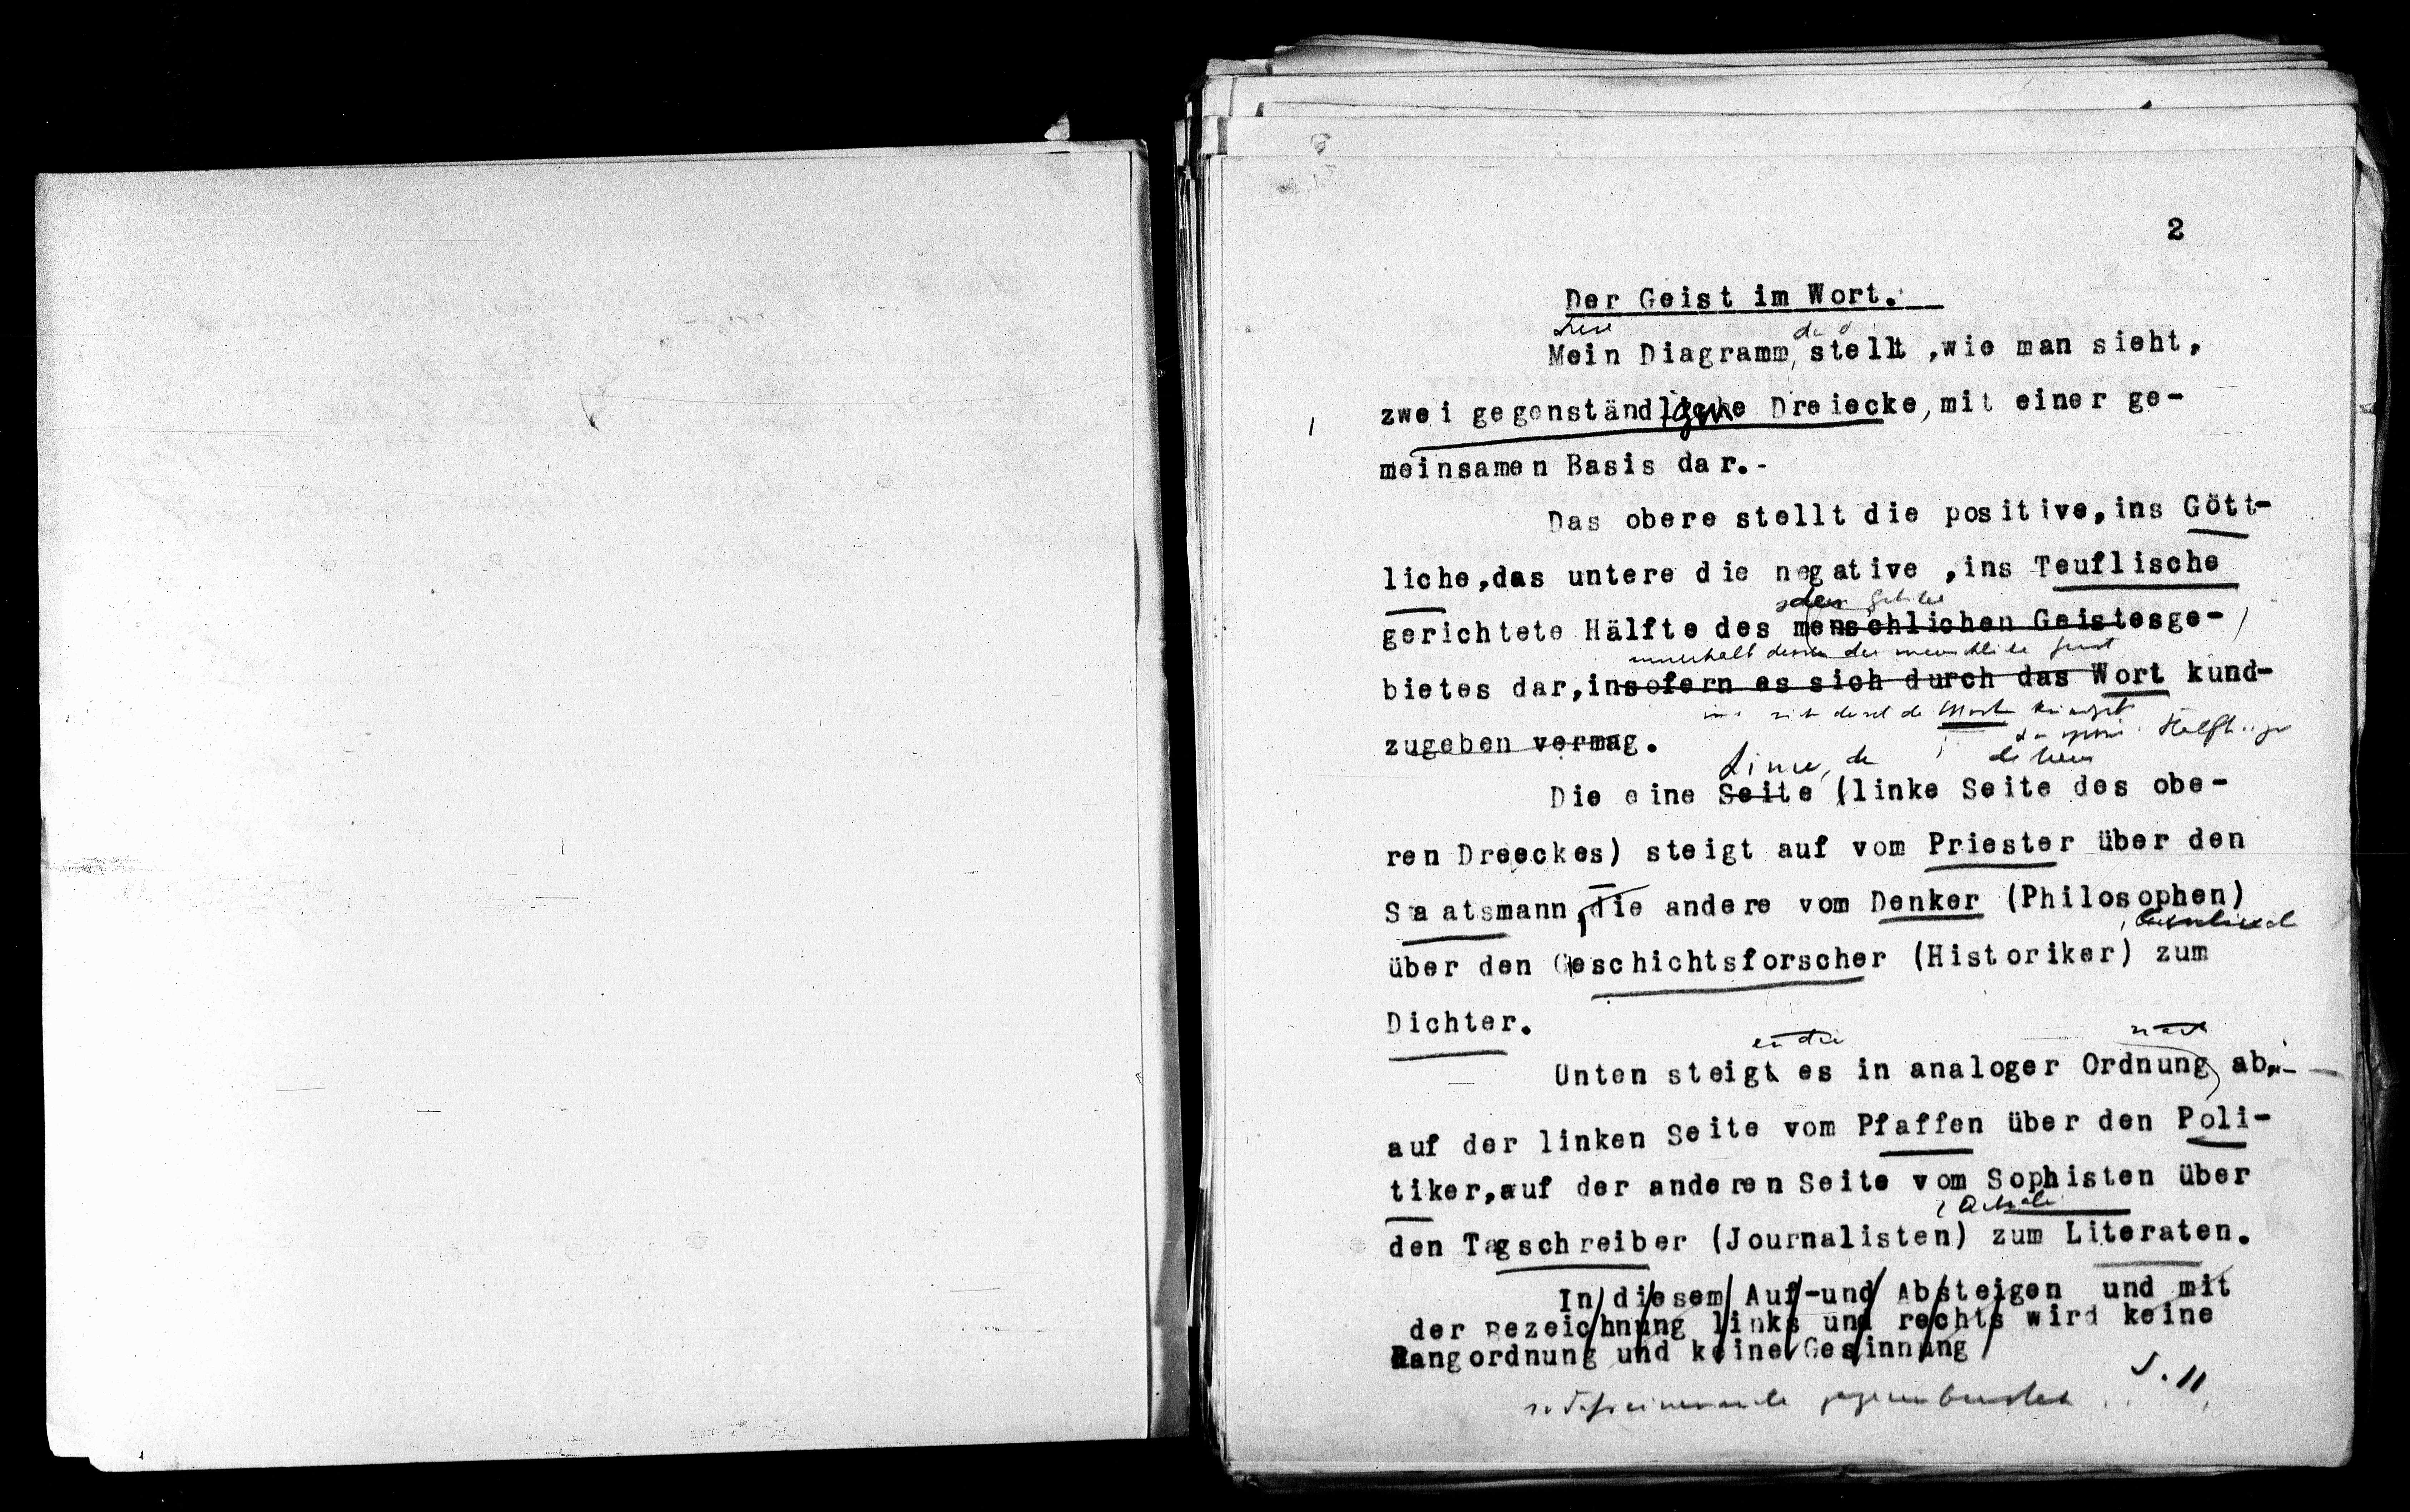 2
Der Geist im Wort.
Mein Diagramm, stellt ,wie man sieht,
zwei gegenständige Dreiecke, mit einer ge-
meinsamen Basis dar.-
Das obere stellt die positive,ins Gött-
liche,das untere die negative ,ins Teuflische
gerichtete Hälfte des menschlichen Geistesge-
innerhalb dessen der menschliche Geist
bietes dar,insofern es sich durch das Wort kund-
zugeben vermag.
Linie, die
Die eine Seite (linke Seite des obe-
ren Dreeckes) steigt auf vom Priester über den
Saatsmann,die andere vom Denker (Philosophen)
über den Geschichtsforscher (Historiker) zum
Dichter.
Unten steigt es in analoger Ordnung ab,-
auf der linken Seite vom Pfaffen über den Poli-
tiker,auf der anderen Seite vom Sophisten über
den Tagschreiber (Journalisten) zum Literaten.
In diesem Auf-und Absteigen und mit
der Bezeichnung links und rechts wird keine
Rangordnung und keine Gesinnung
S. 11